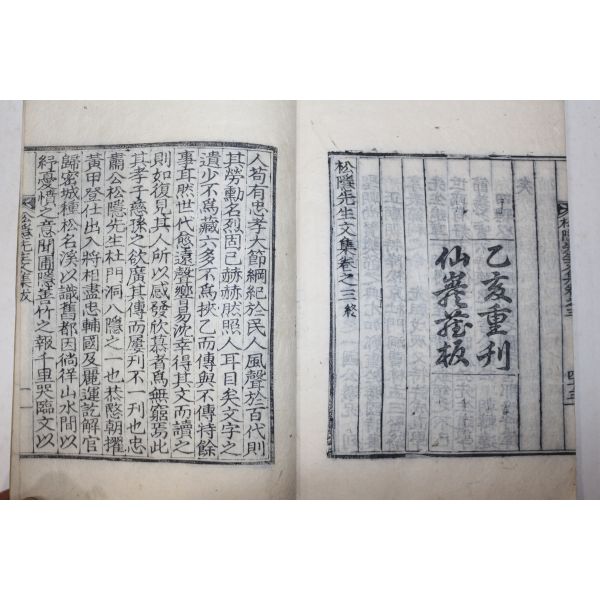 乙亥重刊
仙巖藏板
松隱先生文集卷之三終
人苟有忠孝大節綱紀於民人風聲於百代則
其勞勳名烈固已赫赫然照人耳目矣文字之
遺少不爲藏六多不爲挾乙而傳與不傳特餘
事耳然世代愈遠聲響易沈幸得其文而讀之
則如復見其人所以感發欣慕者爲無窮焉此
其孝子慈孫之欲廣其傳而屢刊不一刊也忠
肅公松隱先生杜門洞八隱之一也恭愍朝擢
黃甲登仕出入將相盡忠輔國及麗運訖解官
歸密城種松名溪以識舊都因徜徉山水間以
紓憂憤之意聞圃隱善竹之報千里哭臨文以
松隱先生文集跋 一